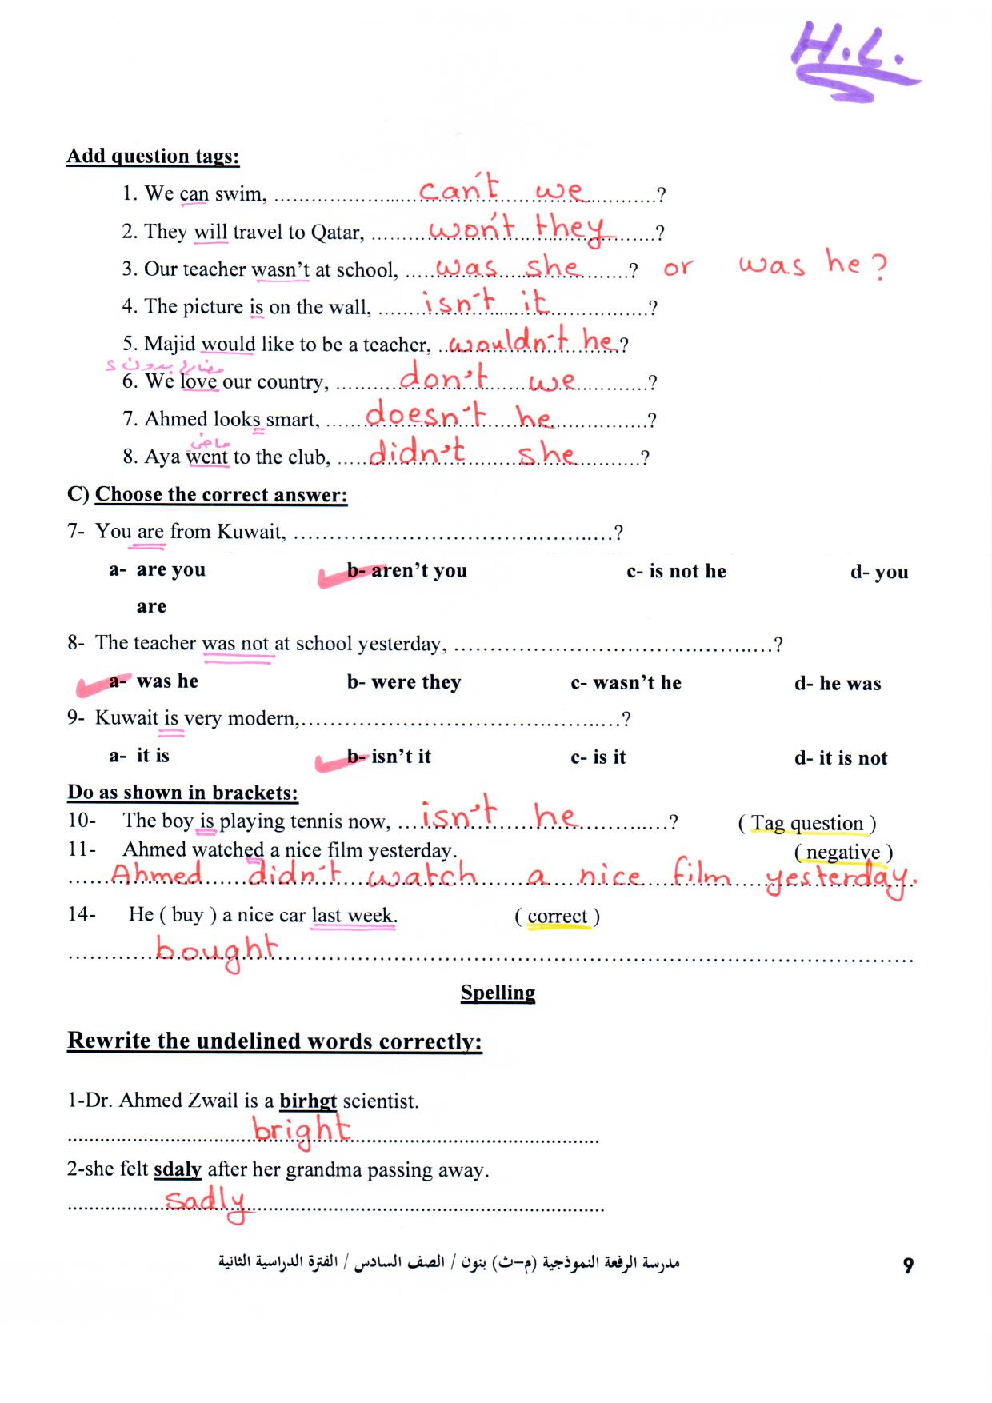 H.L.
Add question tags:
1. We can swim, ...................... can't we ............?
2. They will travel to Qatar, ......... won't they .......?
3. Our teacher wasn't at school, ..... was she .......? or was he?
4. The picture is on the wall, ....... isn't it ..............?
5. Majid would like to be a teacher, ..wouldn't he.?
مضارع بدون s
6. We love our country, ......... don't we ..........?
7. Ahmed looks smart, ...... doesn't he .............?
ماضي
8. Aya went to the club, ..... didn't she .........?
C) Choose the correct answer:
7- You are from Kuwait, ............................................?
a- are you b- aren't you c- is not he d- you
are
8- The teacher was not at school yesterday, ............................................?
a- was he b- were they c- wasn't he d- he was
9- Kuwait is very modern,............................................?
a- it is b- isn't it c- is it d- it is not
Do as shown in brackets:
10- The boy is playing tennis now, .... isn't he .............? ( Tag question )
11- Ahmed watched a nice film yesterday. ( negative )
......Ahmed didn't watch a nice film yesterday.
14- He ( buy ) a nice car last week. ( correct )
............ bought ............................................
Spelling
Rewrite the undelined words correctly:
1-Dr. Ahmed Zwail is a birhgt scientist.
............................ bright ..................................
2-she felt sdaly after her grandma passing away.
.............. sadly ..................................................
مدرسة الرفعة النموذجية (م-ث) بنون / الصف السادس / الفترة الدراسية الثانية 9